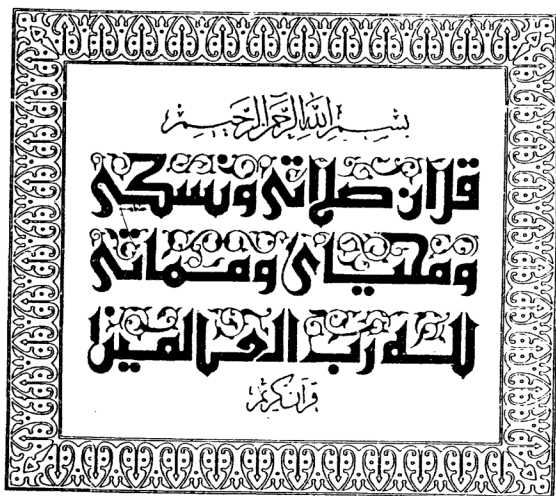 بسم الله الرحمن الرحيم
قل إن صلاتي ونسكي
ومحياي ومماتي
لله رب العالمين
قرآن كريم